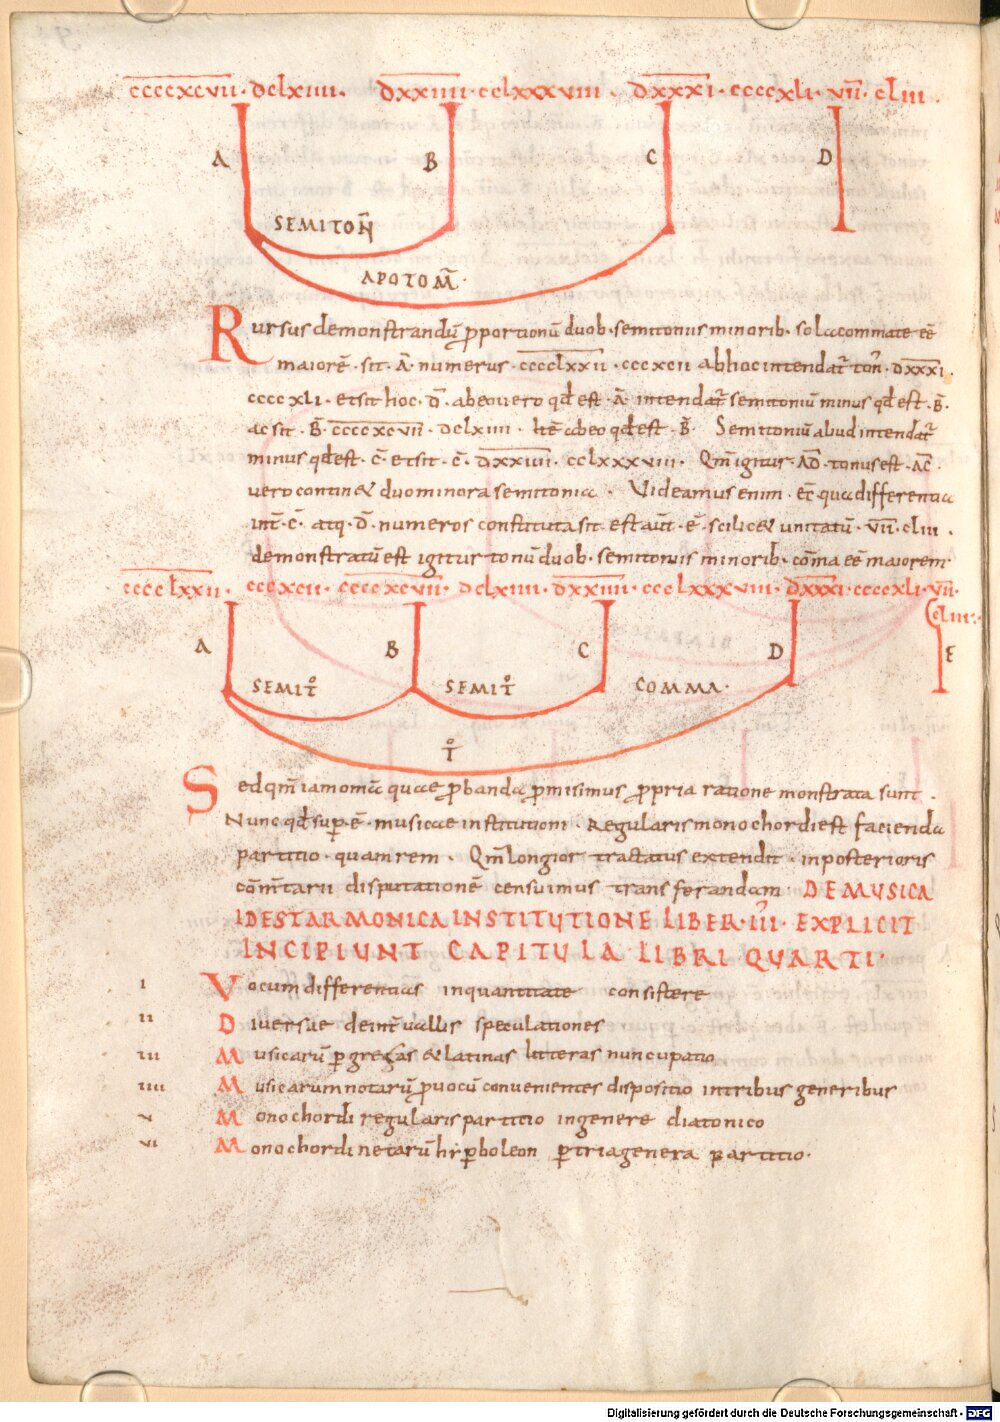 ccccxcvii · dclxiiii · dxxiiii · cclxxxviii · dxxxi · ccccxli · vii · cliii ·
A B C D
SEMITOÑ
APOTOM̄ ·
Rursus demonstrandū ꝓportionū duob · semitoniis minorib · sola commate eē
maiorē · sit · Ā · numerus · cccclxxii · cccxcii ab hoc intendat̄ ton̄ · dxxxi ·
ccccxli · et sit hoc · D̄ · ab eo uero qd̄ est · Ā · intendat̄ semitoniū minus qd̄ est · B̄ ·
ac sit · B̄ · ccccxcvii · dclxiiii · Itē ab eo qd̄ est · B̄ · Semitoniū aliud intendat̄
minus qd̄ est · C̄ · et sit · C̄ · dxxiiii · cclxxxviii · Qm̄ igitur · AD̄ · tonus est · AC̄ ·
uero contin& duo minora semitonia · Videamus enim · ec̄ qua differentia
int̄ · C̄ · atq · D̄ · numeros constituta sit · est aūt · Ē · scilic& unitatū · vii · cliii ·
demonstratū est igitur tonū duob · semitoniis minorib · cōma eē maiorem ·
cccclxxii · cccxcii · ccccxcvii · dclxiiii · dxxiiii · ccclxxxviii · dxxxi · ccccxli · vii ·
cliii ·
A B C D E
SEMIT̊ SEMIT̊ COMMA ·
T̊
Sed qm̄ iam omā quae ꝓbanda ꝓmisimus ꝓpria ratione monstrata sunt ·
Nunc qd̄ sup · ē · musicae institutioni · Regularis monochordi est facienda
partitio · quam rem · Qm̄ longior tractatus extendit · in posterioris
com̄tarii disputationē censuimus transferandam · DE MUSICA
ID EST ARMONICA INSTITUTIONE LIBER · III · EXPLICIT
INCIPIUNT CAPITULA LIBRI QUARTI ·
i Vocum differentias in quantitate consistere
ii Diuersae de int̄uallis speculationes
iii Musicarū ꝑ grecas & latinas litteras nuncupatio
iiii Musicarum notarū ꝑ uocū conuenientes dispositio in tribus generibus
v Monochordi regularis partitio in genere diatonico
vi Monochordi netarū hyꝑboleon ꝑ tria genera partitio ·
Digitalisierung gefördert durch die Deutsche Forschungsgemeinschaft - DFG